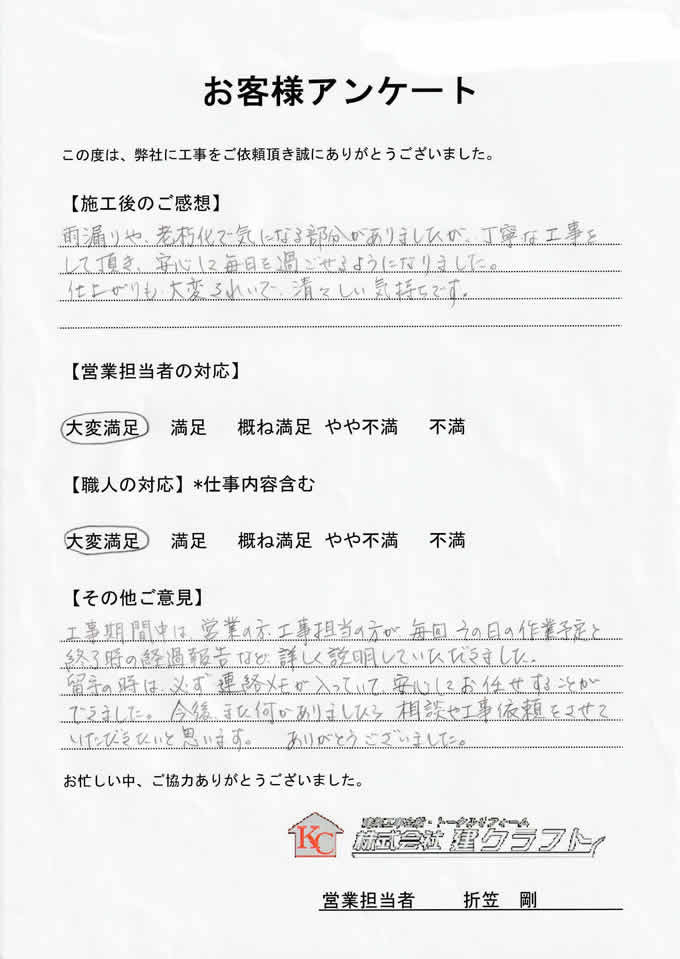 お客様アンケート
この度は、弊社に工事をご依頼頂き誠にありがとうございました。
【施工後のご感想】
雨漏りや、老朽化で気になる部分がありましたが、丁寧な工事を
して頂き、安心して毎日を過ごせるようになりました。
仕上がりも、大変きれいで、清々しい気持ちです。
【営業担当者の対応】
大変満足 満足 概ね満足 やや不満 不満
【職人の対応】*仕事内容含む
大変満足 満足 概ね満足 やや不満 不満
【その他ご意見】
工事期間中は、営業の方、工事担当の方が、毎回、その日の作業予定と
終了時の経過報告など、詳しく説明していただきました。
留守の時は、必ず連絡メモが入っていて、安心してお任せすることが
できました。今後、また何かありましたら相談や工事依頼をさせて
いただきたいと思います。 ありがとうございました。
お忙しい中、ご協力ありがとうございました。
KC
・トータルリフォーム
株式会社 建クラフト
営業担当者 折笠 剛